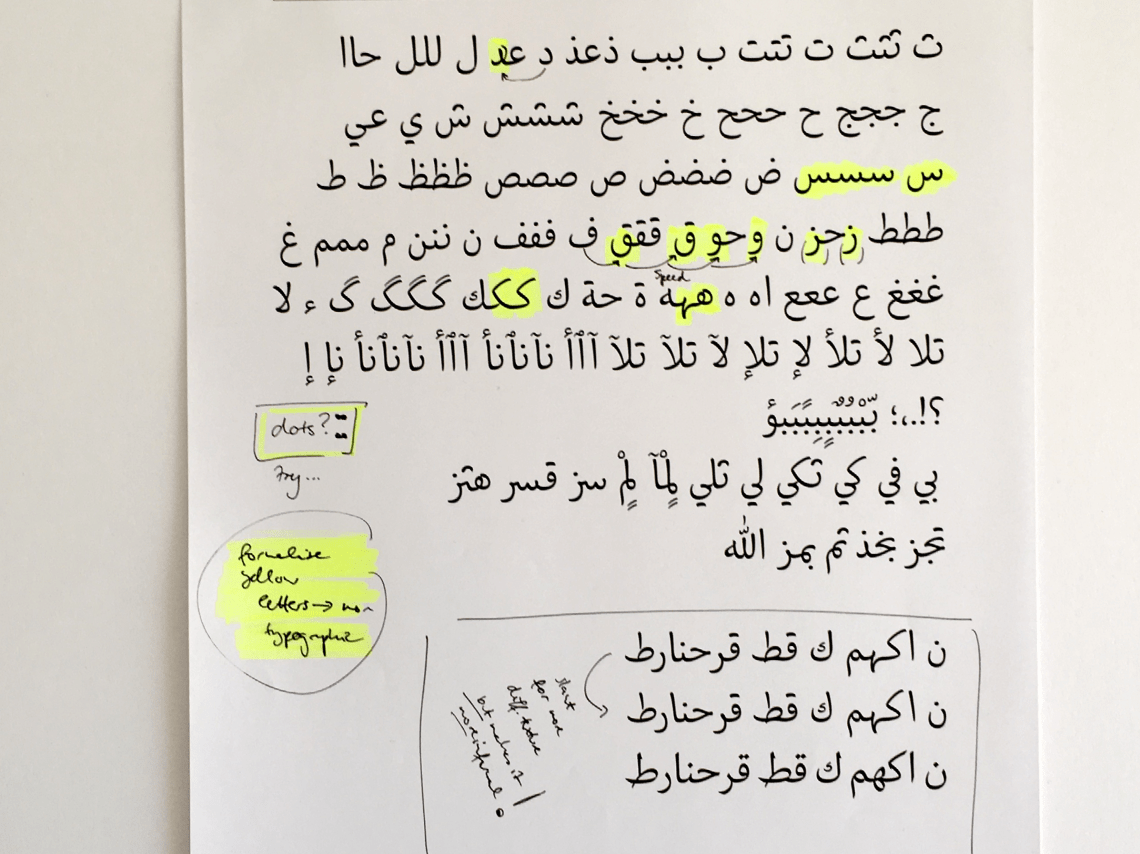 ت تتت ت تتت ب ببب ذعذ د عد ل للل حاا
ج ججج ح ححح خ خخخ ششش ش ي عي
س سسس ض ضضض ص صصص ظظظ ظ ط
ططط زحز ن وحو ق ققق ف ففف ن ننن م ممم غ
speed
غغغ ع ععع اه ه ههه ة حة ك ككك گگگ گ ء لا
تلا لأ تلأ لإ تلإ لآ تلآ تلآ آآأأ نآنآنأ آآأأ نآنآنأ نإ إ
؟!.،؛
dots?
try...
بي في كي تكي لي تلي سز قسر هتز
تجز بخذ تم بمز الله
formalise
yellow
letters →
typographic
ن اكهم ك قط قرحنارط
ن اكهم ك قط قرحنارط
ن اكهم ك قط قرحنارط
slant
for more
diff. texture
but makes it
more informal